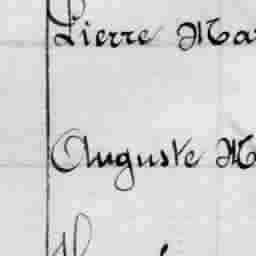 Pierre Ma
Auguste M